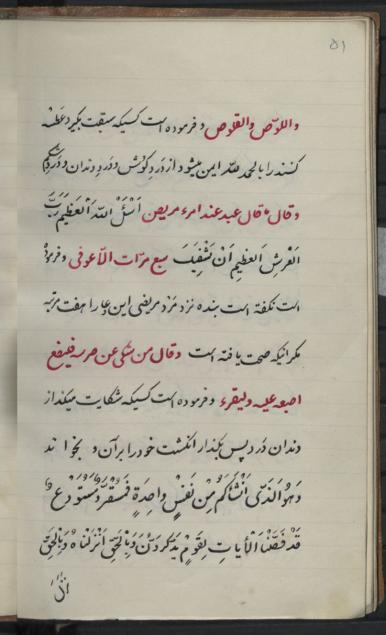 ۵۱
واللوّص والعلوص و فرموده است کسیکه سبقت بگیرد عطسه
کننده را بالحمد لله ایمن میشود از درد گوش و درد دندان و درد شکم
و قال ما قال عبد عند امرء مریض اَسْئَلُ اللّهَ اَلعَظیمَ رَبَّ
اَلعَرشِ اَلعَظیمِ اَنْ یَشْفِیَکَ سبع مرّات الّا عوفی و فرموده
است نگفته است بنده نزد مَرْد مریضی این دعا را هفت مرتبه
مگر اینکه صحت یافته است و قال من شکی من ضرسه فلیضع
اصبعه علیه ولیقرء و فرموده است کسیکه شکایت میکند از
دندان درد پس بگذارد انگشت خود را بر آن و بخواند
وَهُوَ الَّذی اَنْشَاَکُمْ مِنْ نَفْسٍ واحِدَةٍ فَمُسْتَقَرٌّ وَمُسْتَوْدَعٌ
قَدْ فَصَّلْنَا الْآیاتِ لِقَوْمٍ یَذَّکَّرُونَ وَبِالْحَقِّ اَنْزَلْناهُ وَبِالْحَقِّ